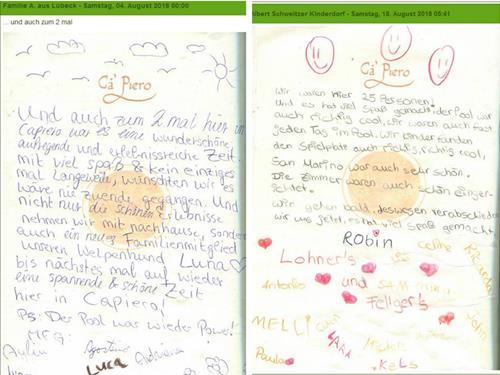 Familie A. aus Lübeck - Samstag, 04. August 2018 00:00
... und auch zum 2 mal
Ca' Piero
Und auch zum 2.mal hier in
Capiero war es eine wunderschöne,
aufregende und erlebnissreiche Zeit.
mit viel spaß & kein einziges
mal Langeweile, wünschten wir es
wäre nie zuende gegangen. Und
nicht nur die schönen Erlebnisse
nehmen wir mit nachhause, sondern
auch ein neues Familienmitglied
unseren Welpenhund Luna
bis nächstes mal auf wieder
eine spannende & schöne Zeit
hier in Capiero!
PS: Der Pool war wieder Power!
MFG:
Luca
lbert Schweitzer Kinderdorf - Samstag, 18. August 2018 05:41
Ca' Piero
Wir waren hier 25 Personen!
Und es hat viel Spaß gemacht, der Pool war
auch richtig cool, wir waren auch fast
jeden Tag im Pool. Wir kinder fanden
den Spielplatz auch richtig, richtig cool,
San Marino war auch sehr schön.
Die Zimmer waren auch schön
wir gehen bald, deswegen verabschieden
wir uns jetzt, es hat viel Spaß gemacht
Robin
Lohner's
Antonio und
Fellger's
John
MELLI
LARA
Paula
Kels